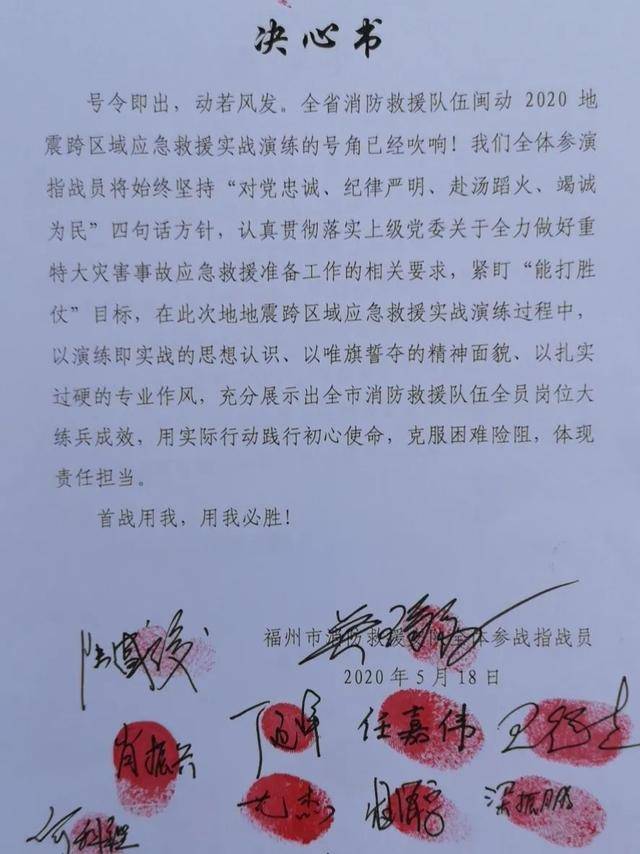 决心书
号令即出，动若风发。全省消防救援队伍闽动 2020 地
震跨区域应急救援实战演练的号角已经吹响！我们全体参演
指战员将始终坚持“对党忠诚、纪律严明、赴汤蹈火、竭诚
为民”四句话方针，认真贯彻落实上级党委关于全力做好重
特大灾害事故应急救援准备工作的相关要求，紧盯“能打胜
仗”目标，在此次地地震跨区域应急救援实战演练过程中，
以演练即实战的思想认识、以唯旗誓夺的精神面貌、以扎实
过硬的专业作风，充分展示出全市消防救援队伍全员岗位大
练兵成效，用实际行动践行初心使命，克服困难险阻，体现
责任担当。
首战用我，用我必胜！
福州市消防救援 全体参战指战员
2020 年 5 月 18 日
肖振兴 任嘉伟
尤杰